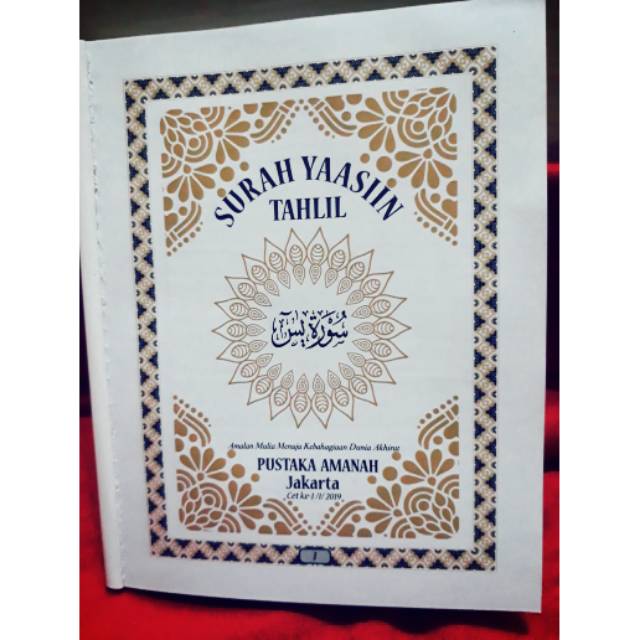 SURAH YAASIIN
TAHLIL
سُوْرَةُ يٰسٓ
Amalan Mulia Menuju Kebahagiaan Dunia Akhirat
PUSTAKA AMANAH
Jakarta
Cet ke-1/I/ 2019
1